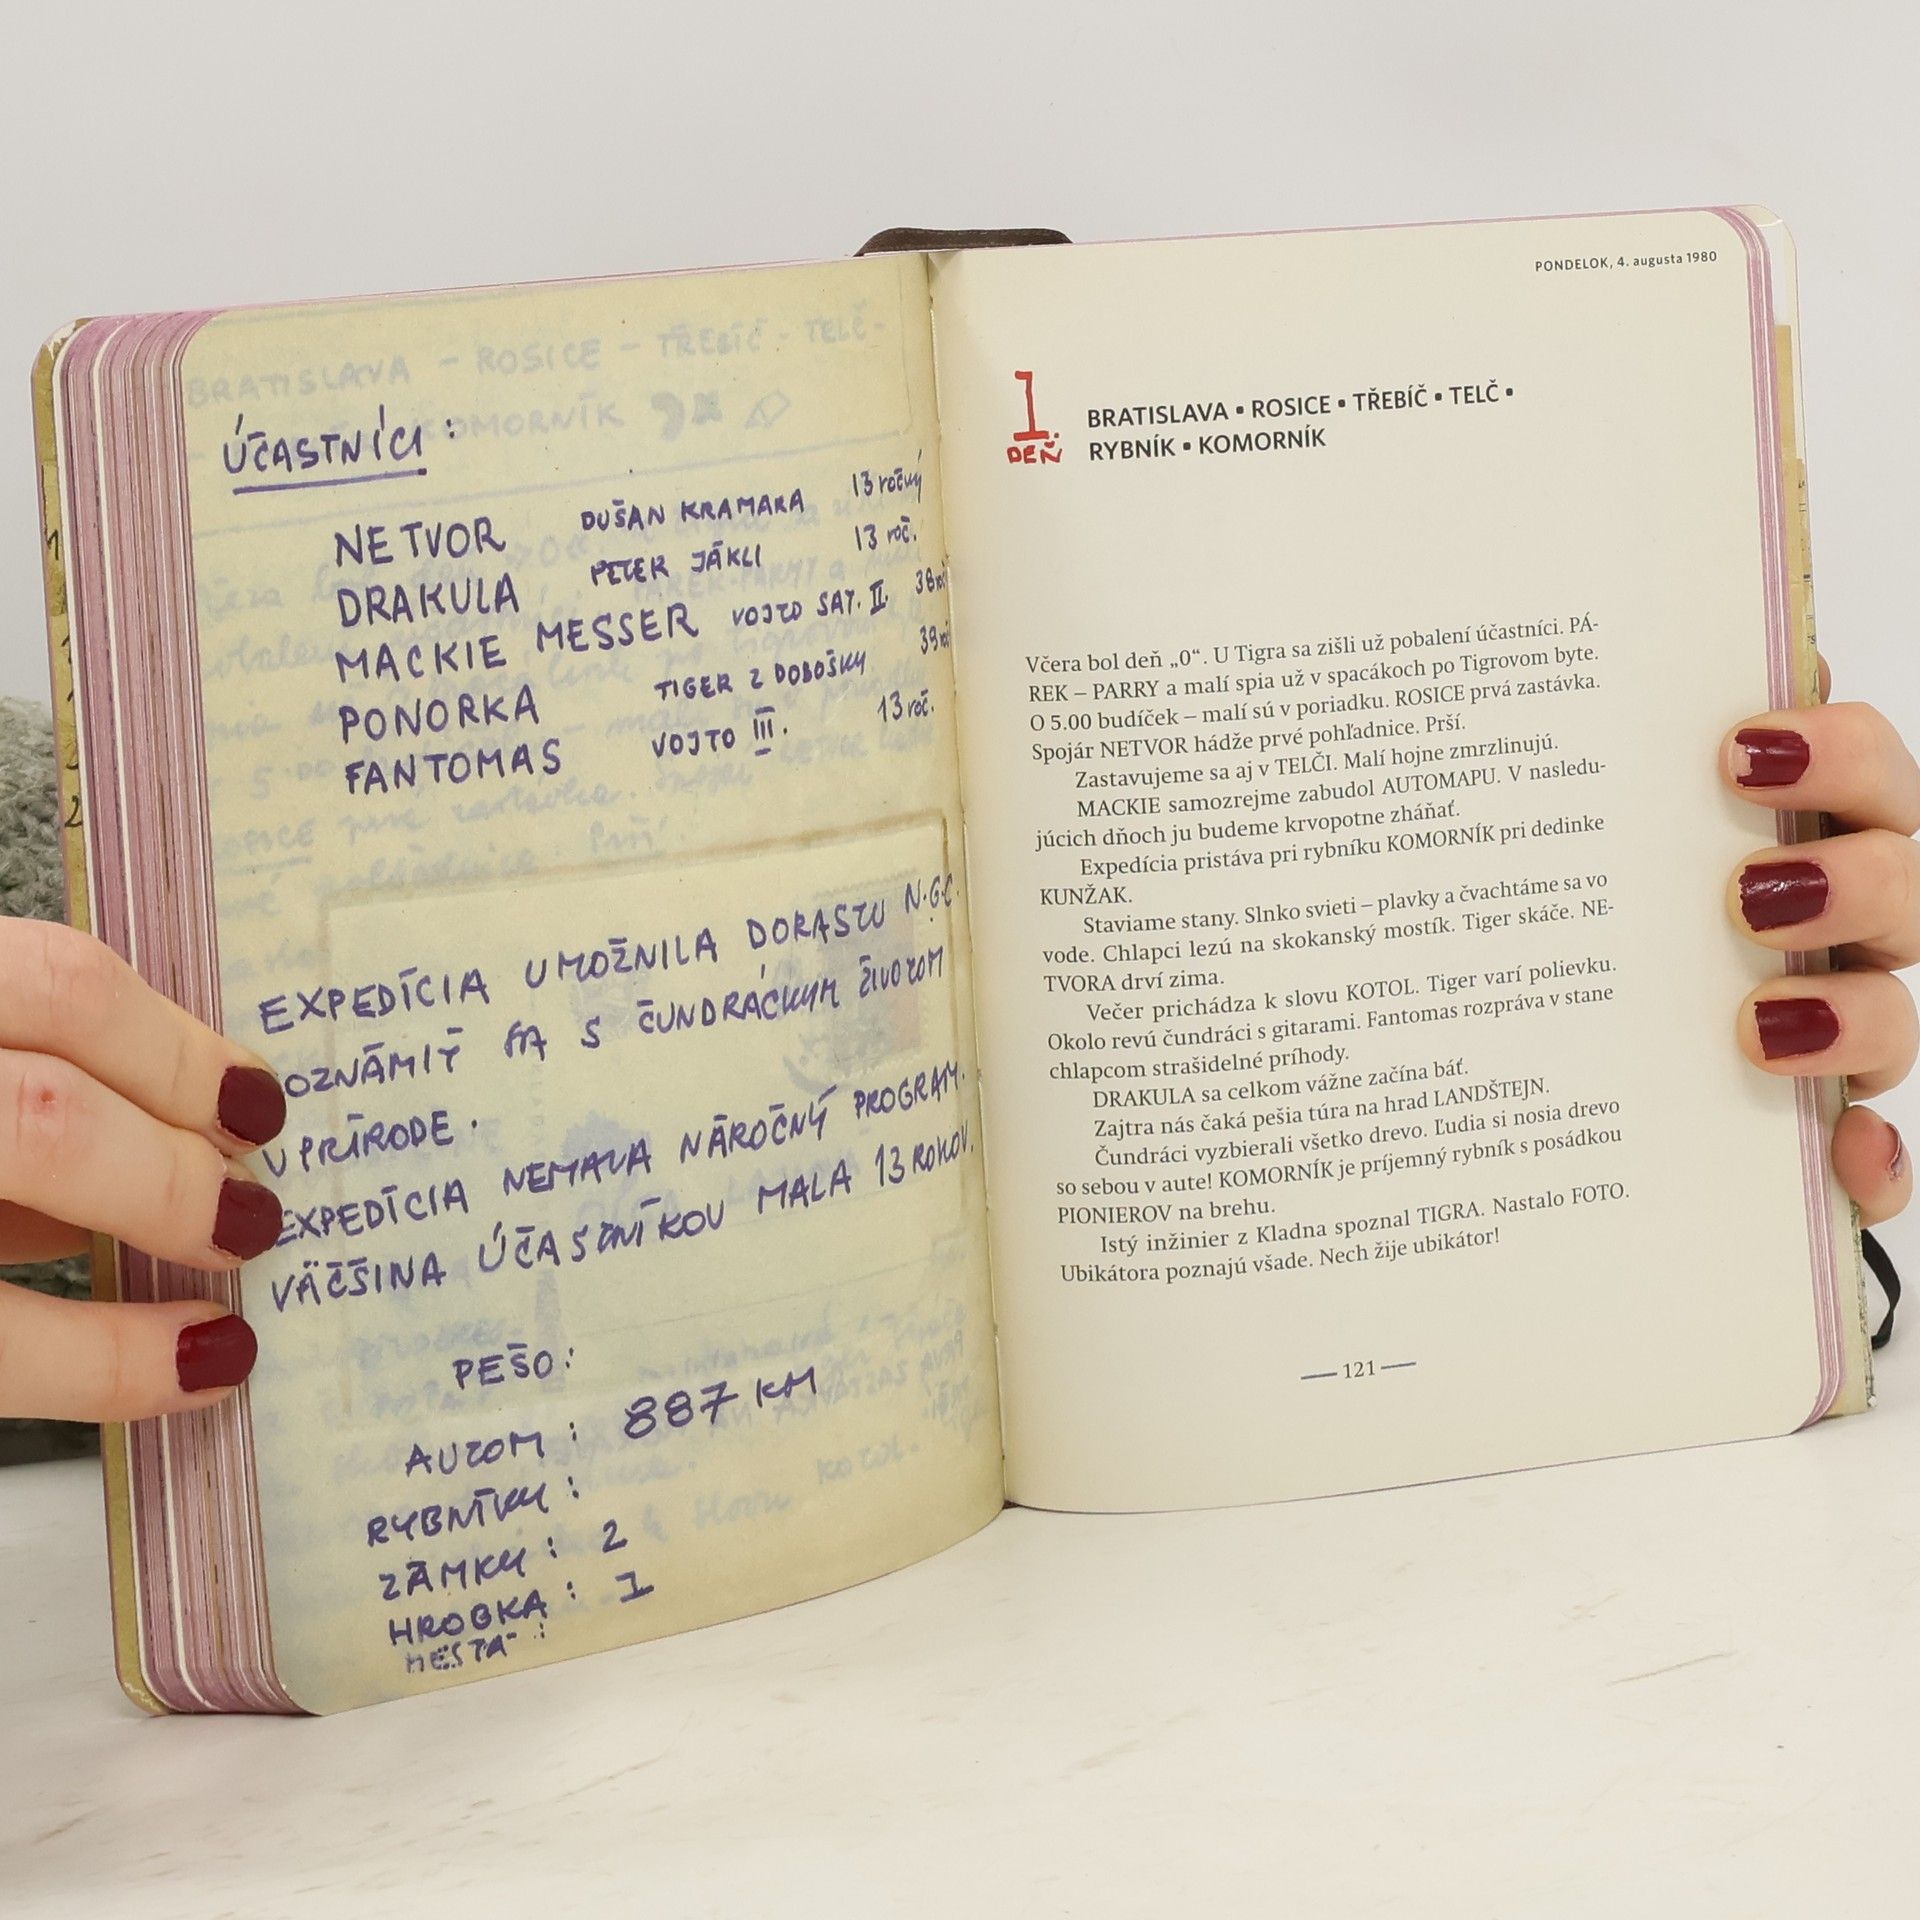 ÚČASTNÍCI :
NETVOR DUŠAN KRAMARA 13 ročný
DRAKULA PETER JÁKLI 13 roč.
MACKIE MESSER VOJTO SAT. II. 38
PONORKA TIGER Z DOBOŠKY 39
FANTOMAS VOJTO III. 13 roč.
EXPEDÍCIA UMOŽNILA DORASTU N.G.C.
OZNÁMIŤ SA S ČUNDRÁCKYM ŽIVOTOM
V PRÍRODE.
EXPEDÍCIA NEMALA NÁROČNÝ PROGRAM.
VÄČŠINA ÚČASTNÍKOV MALA 13 ROKOV.
PEŠO:
AUTOM : 887 KM
RYBNÍKY :
ZÁMKY : 2
HROBKA : 1
MESTÁ :
PONDELOK, 4. augusta 1980
1. DEŇ
BRATISLAVA • ROSICE • TŘEBÍČ • TELČ •
RYBNÍK • KOMORNÍK
Včera bol deň „0“. U Tigra sa zišli už pobalení účastníci. PÁ-
REK – PARRY a malí spia už v spacákoch po Tigrovom byte.
O 5.00 budíček – malí sú v poriadku. ROSICE prvá zastávka.
Spojár NETVOR hádže prvé pohľadnice. Prší.
Zastavujeme sa aj v TELČI. Malí hojne zmrzlinujú.
MACKIE samozrejme zabudol AUTOMAPU. V nasledu-
júcich dňoch ju budeme krvopotne zháňať.
Expedícia pristáva pri rybníku KOMORNÍK pri dedinke
KUNŽAK.
Staviame stany. Slnko svieti – plavky a čvachtáme sa vo
vode. Chlapci lezú na skokanský mostík. Tiger skáče. NE-
TVORA drví zima.
Večer prichádza k slovu KOTOL. Tiger varí polievku.
Okolo revú čundráci s gitarami. Fantomas rozpráva v stane
chlapcom strašidelné príhody.
DRAKULA sa celkom vážne začína báť.
Zajtra nás čaká pešia túra na hrad LANDŠTEJN.
Čundráci vyzbierali všetko drevo. Ľudia si nosia drevo
so sebou v aute! KOMORNÍK je príjemný rybník s posádkou
PIONIEROV na brehu.
Istý inžinier z Kladna spoznal TIGRA. Nastalo FOTO.
Ubikátora poznajú všade. Nech žije ubikátor!
— 121 —